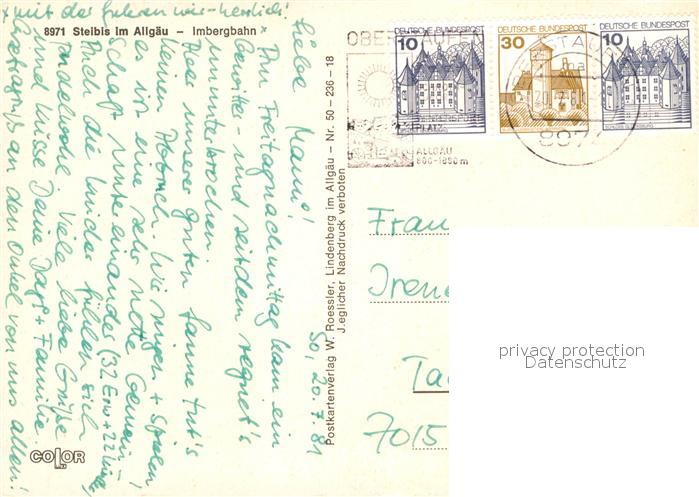 8971 Steibis im Allgäu – Imbergbahn
x mit der fahren wir – herrlich!
So, 20.7.81
Liebe Mami!
Am Freitagnachmittag kam ein
Gewitter und seitdem regnet's
ununterbrochen.
Aber unserer guten Laune tut's
keinen Abbruch. Wir singen + spielen,
es ist eine sehr nette Gemein-
schaft untereinander (32 Erw + 22 Kinder)
Auch die Kinder fühlen sich
pudelwohl. Viele liebe Grüße
und Küsse Deine Dag + Familie
Gratuliere an den Onkel von uns allen!
Postkartenverlag W. Roessler, Lindenberg im Allgäu – Nr. 50 – 236 – 18
J.eglicher Nachdruck verboten
COLOR
10 DEUTSCHE BUNDESPOST
30 DEUTSCHE BUNDESPOST
10 DEUTSCHE BUNDESPOST
OBERSTAUFEN
ALLGÄU
800-1850 m
8974
Frau
Irene
Ta
7015
privacy protection
Datenschutz